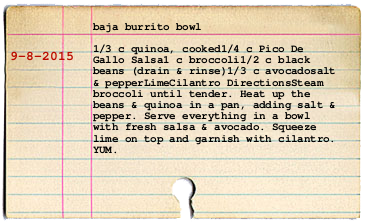 baja burrito bowl
9-8-2015
1/3 c quinoa, cooked1/4 c Pico De
Gallo Salsa1 c broccoli1/2 c black
beans (drain & rinse)1/3 c avocadosalt
& pepperLimeCilantro DirectionsSteam
broccoli until tender. Heat up the
beans & quinoa in a pan, adding salt &
pepper. Serve everything in a bowl
with fresh salsa & avocado. Squeeze
lime on top and garnish with cilantro.
YUM.